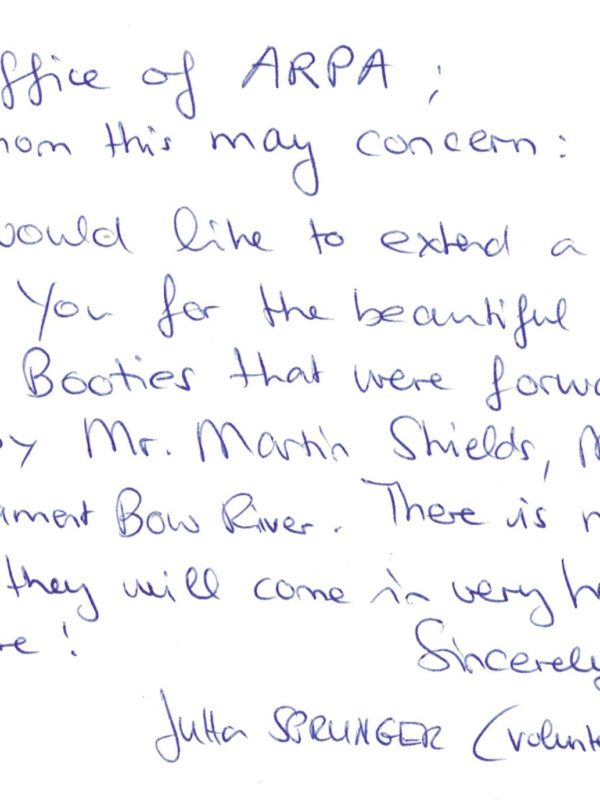 ffice of ARPA ;
hom this may concern :
would like to extend a
You for the beautiful
Booties that were forwa
by Mr. Martin Shields, M
iament Bow River. There is n
they will come in very h
re ! Sincerely
Jutta SPRUNGER (volunt